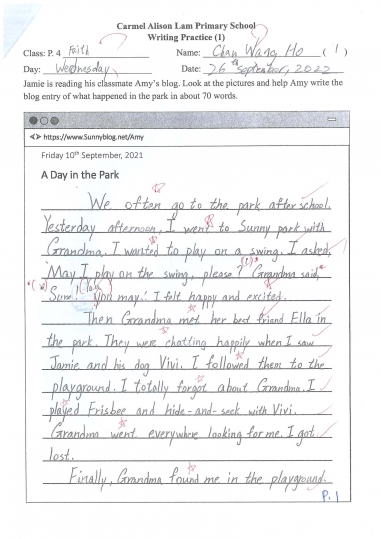 Carmel Alison Lam Primary School
Writing Practice (1)
Class: P. 4 Faith Name: Chan Wang Ho ( 1 )
Day: Wednesday Date: 26th September, 2022
Jamie is reading his classmate Amy's blog. Look at the pictures and help Amy write the
blog entry of what happened in the park in about 70 words.
https://www.Sunnyblog.net/Amy
Friday 10th September, 2021
A Day in the Park
We often go to the park after school.
Yesterday afternoon, I went to Sunny park with
Grandma. I wanted to play on a swing. I asked,
'May I play on the swing, please?' Grandma said,
'Sure! You may.' I felt happy and excited.
Then Grandma met her best friend Ella in
the park. They were chatting happily when I saw
Jamie and his dog Vivi. I followed them to the
playground. I totally forgot about Grandma. I
played Frisbee and hide-and-seek with Vivi.
Grandma went everywhere looking for me. I got
lost.
Finally, Grandma found me in the playground.
P.1